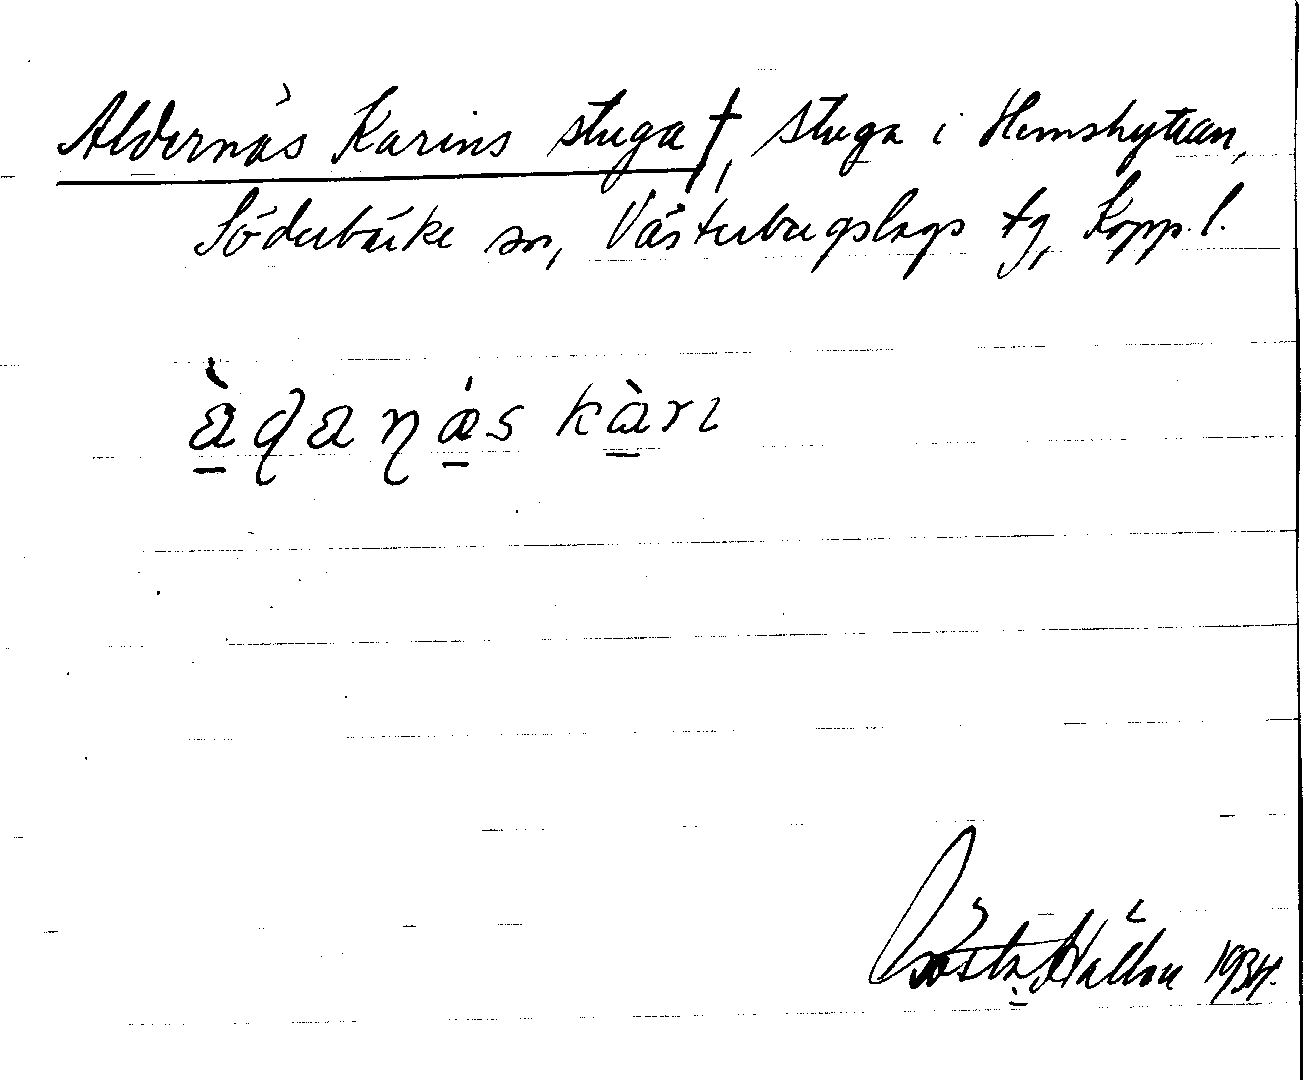 Aldernäs Karins stuga †, stuga i Hemshyttan,
Söderbärke sn, Västerbergslags tg, Kopp. l.
àdaṇás kàrɩ
Gösta Hallor 1934.